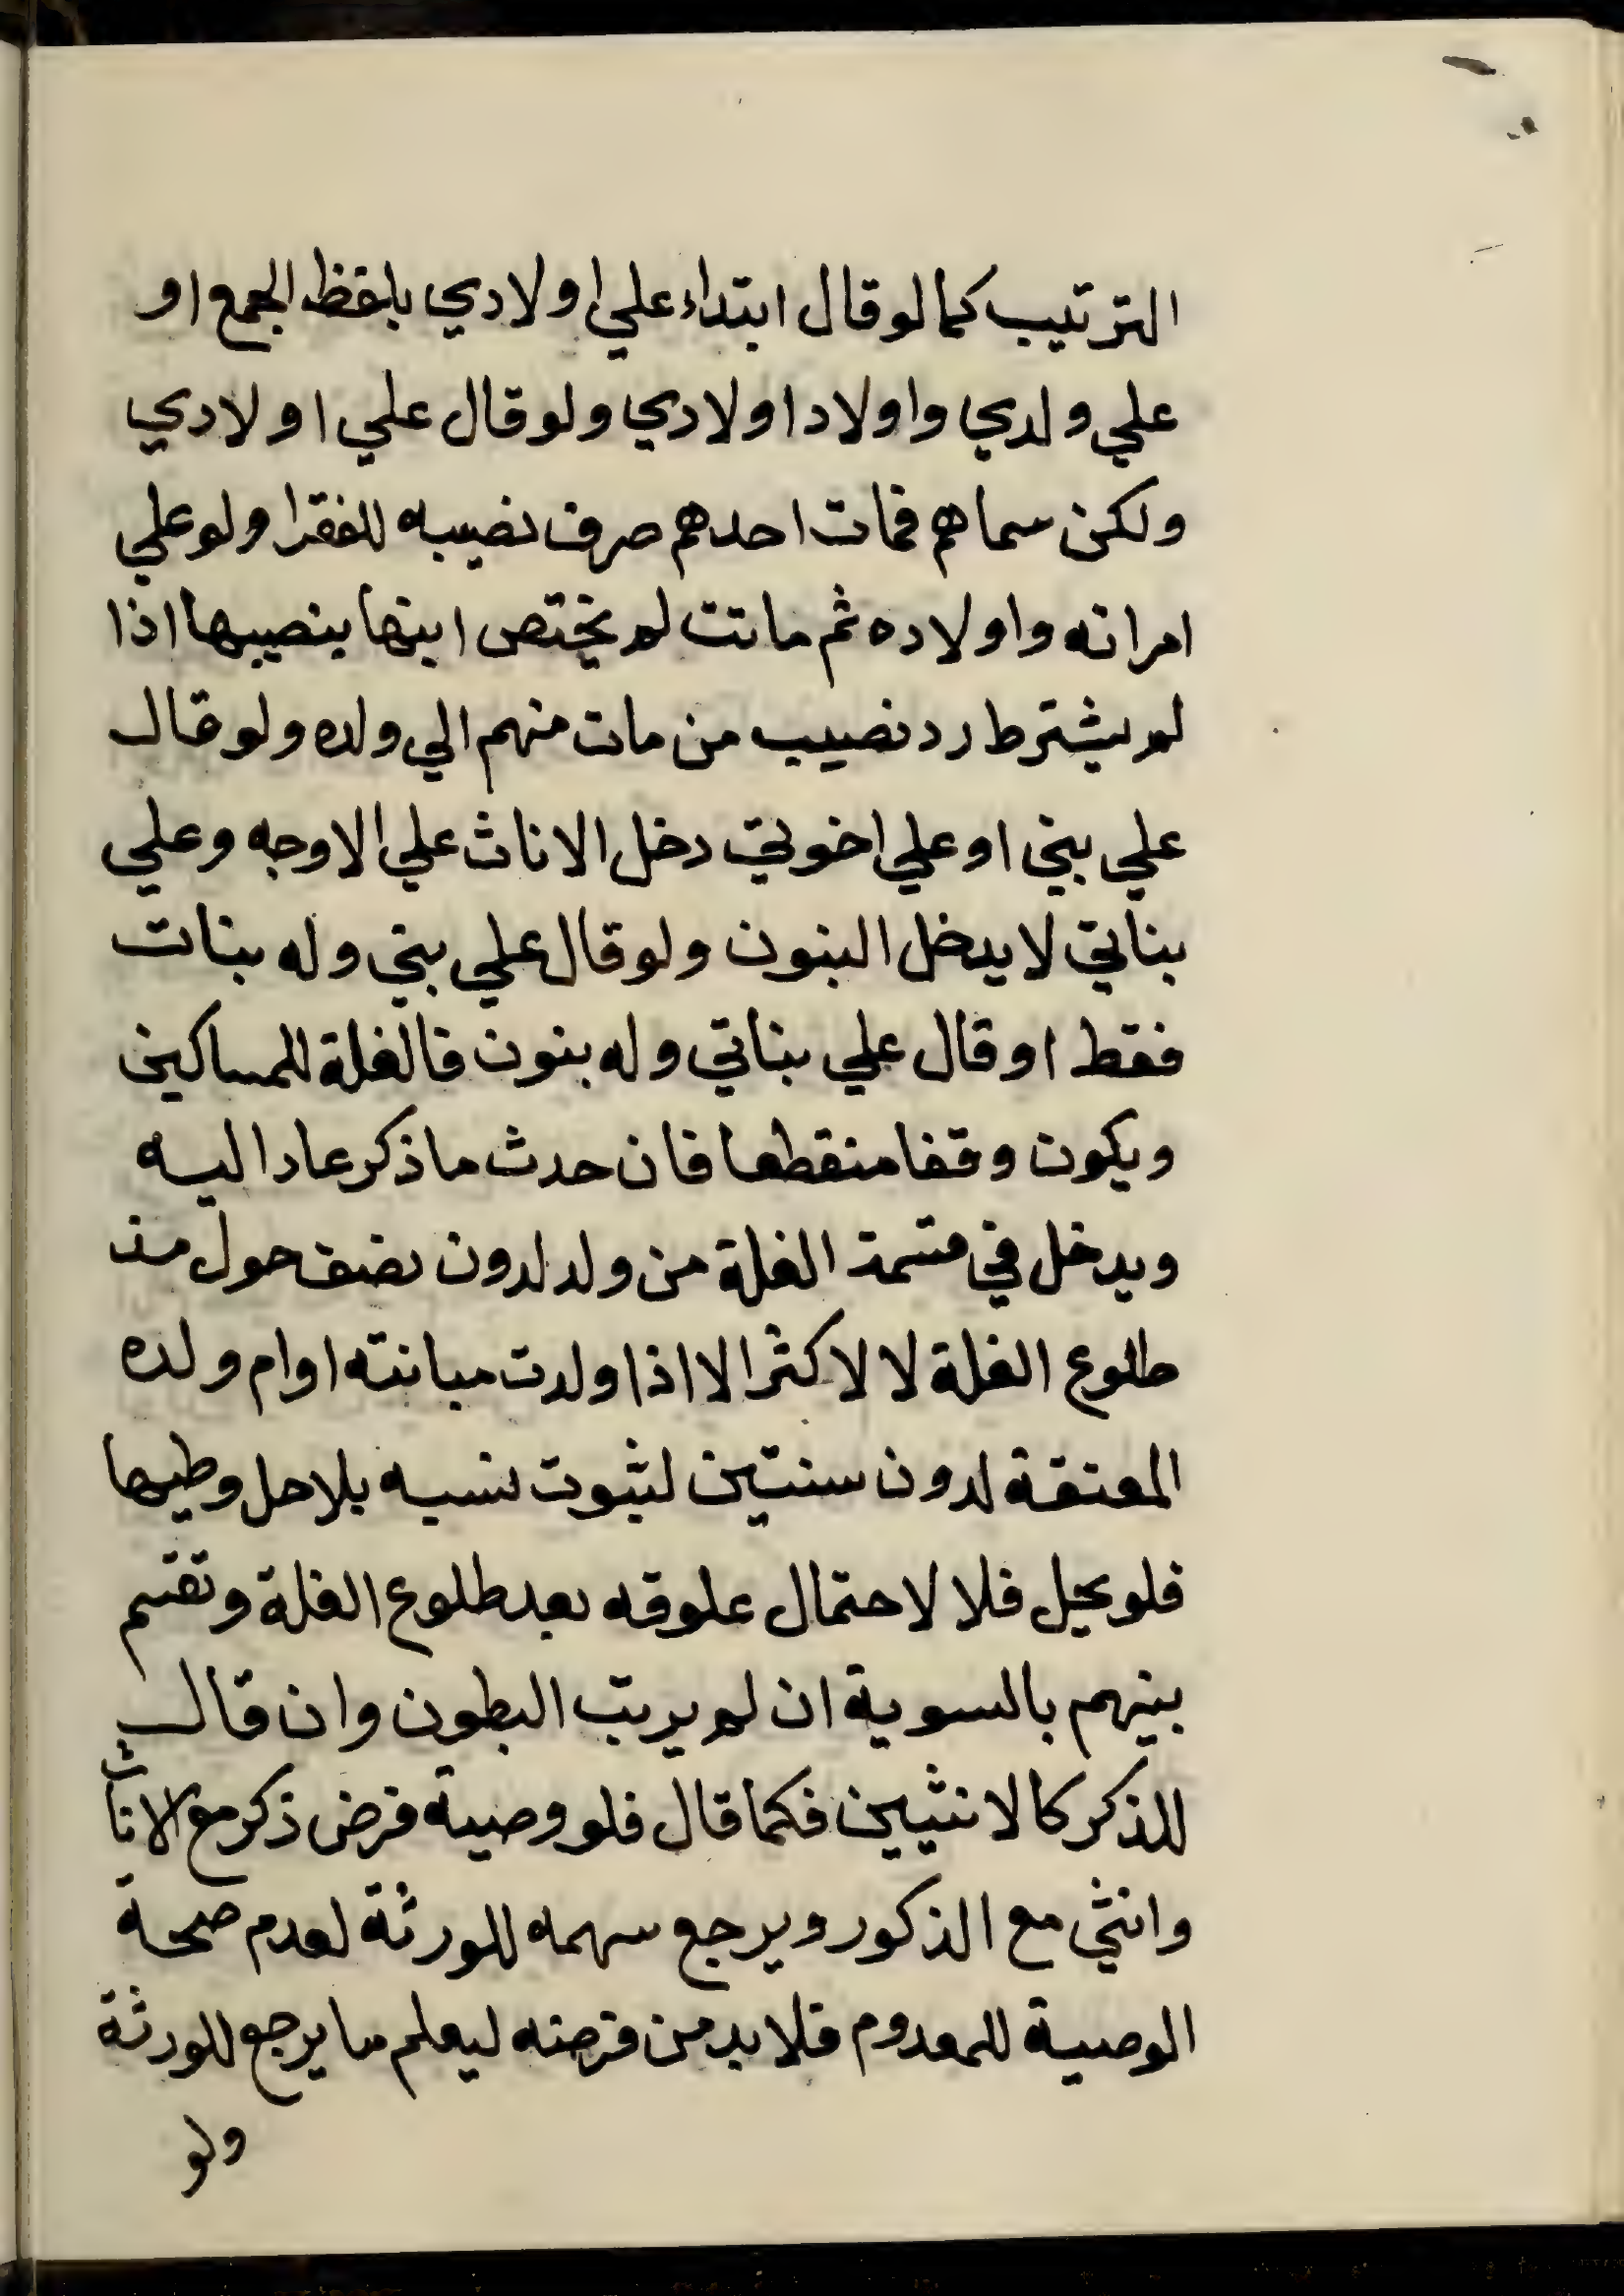 الترتيب كما لو قال ابتداء علي اولادي بلفظ الجمع او
علي ولدي واولاد اولادي ولو قال علي اولادي
ولكن سماهم فمات احدهم صرف نصيبه للفقرا ولو علي
امراته واولاده ثم ماتت لم يختص ابنها بنصيبها اذا
لم يشترط رد نصيب من مات منهم الي ولده ولو قال
علي بني او علي اخوتي دخل الاناث علي الاوجه وعلي
بناتي لا يدخل البنون ولو قال علي بني وله بنات
فقط او قال علي بناتي وله بنون فالغلة للمساكين
ويكون وقفا منقطعا فان حدث ما ذكر عاد اليه
ويدخل في قسمة الغلة من ولد لدون نصف حول مذ
طلوع الغلة لا لاكثر الا اذا ولدت مبانته او ام ولده
المعتقة لدون سنتين لثبوت نسبه بلا حل وطيها
فلو يحل فلا لاحتمال علوقه بعد طلوع الغلة وتقسم
بينهم بالسوية ان لم يرتب البطون وان قال
للذكر كالانثيين فكما قال فلو وصية فرض ذكر مع الاناث
وانثي مع الذكور ويرجع سهمه للورثة لعدم صحة
الوصية للمعدوم فلا بد من فرضه ليعلم ما يرجع للورثة
ولو